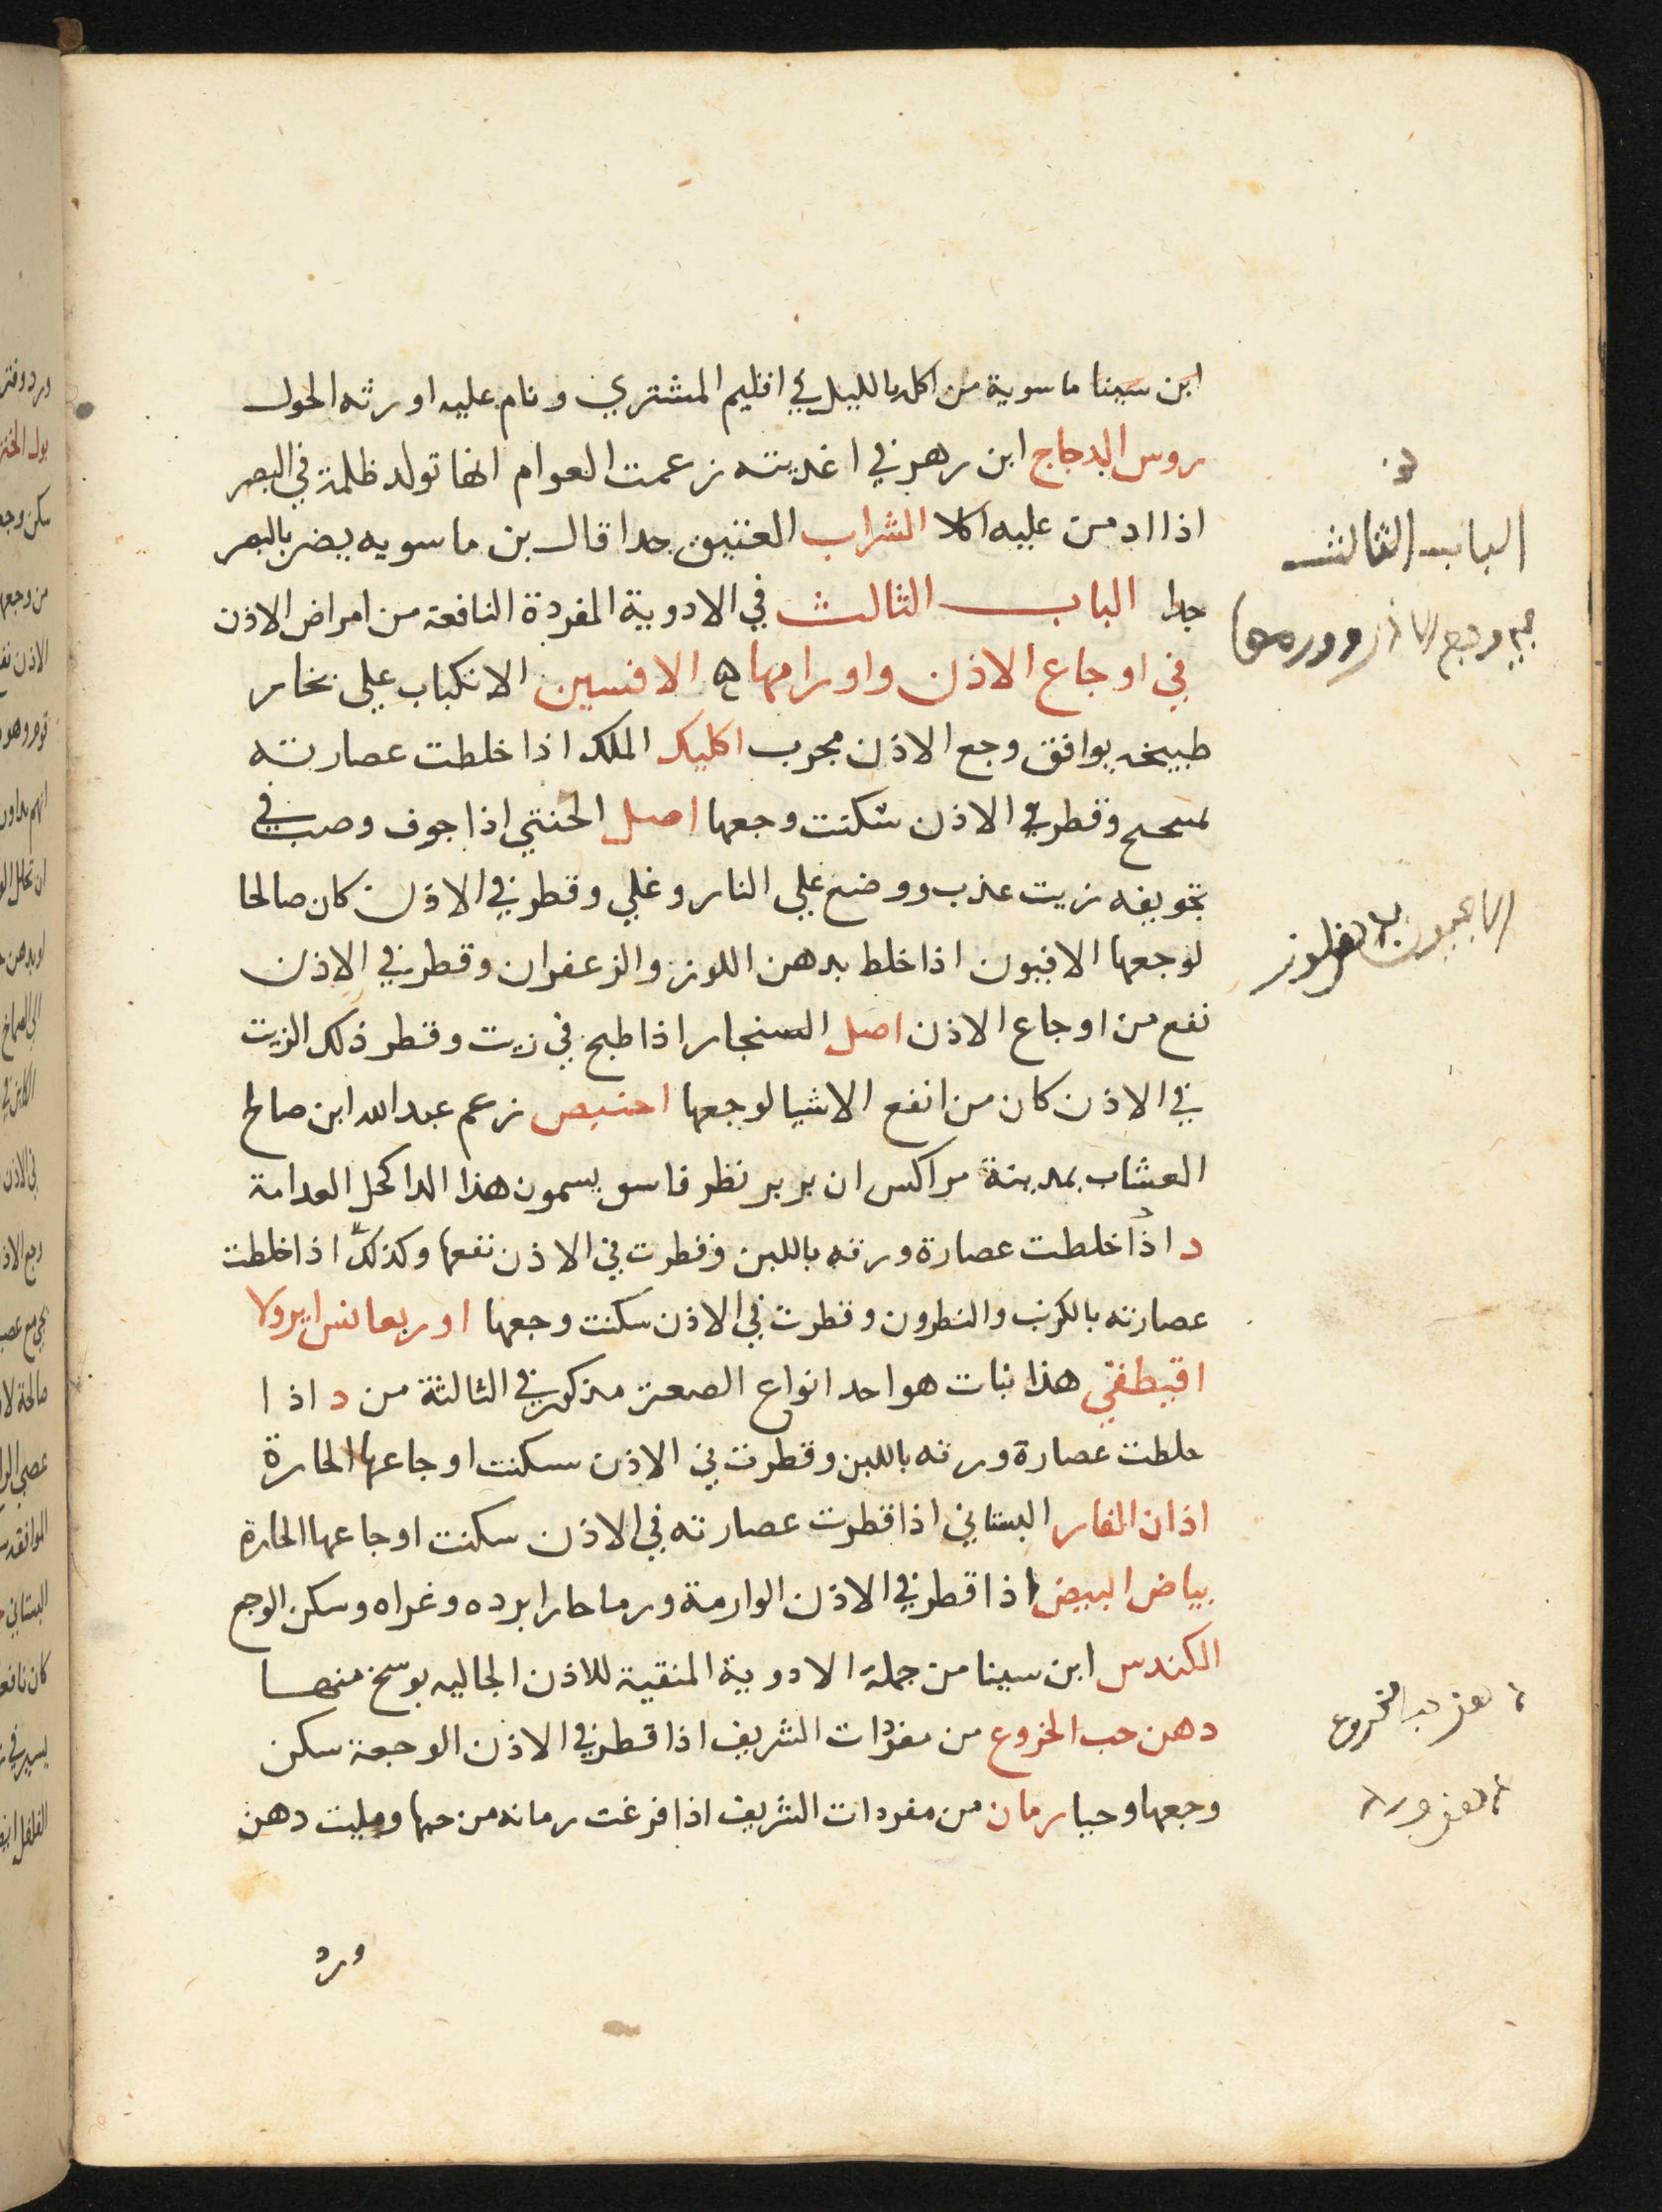 ابن سينا ماسوية من اكل بالليل في اقليم المشتري ونام عليه اورثه الحول
روس الدجاج ابن زهر في اغذيته زعمت العوام انها تولد ظلمة في البصر
اذا ادمن عليه اكلا الشراب العتيق جدا قال بن ماسويه يضر بالبصر
جدا الباب الثالث في الادوية المفردة النافعة من امراض الاذن
في اوجاع الاذن واورامها الافسين الانكباب على بخار
طبيخه يوافق وجع الاذن مجرب اكليل الملك اذا خلطت عصارته
وقطر في الاذن سكنت وجعها اصل الخنثي اذا جوف وصب في
تجويفه زيت عذب ووضع على النار وغلي وقطر في الاذن كان صالحا
لوجعها الافيون اذا خلط بدهن اللوز والزعفران وقطر في الاذن
نفع من اوجاع الاذن اصل السنجار اذا طبخ في زيت وقطر ذلك الزيت
في الاذن كان من انفع الاشيا لوجعها زعم عبد الله ابن صالح
العشاب بمدينة مراكس ان بربر نظر فاس يسمون هذا الدا كحل العدامة
د اذا خلطت عصارة ورقه باللبن وقطرت في الاذن نفعها وكذلك اذا خلطت
عصارته بالكرنب والنطرون وقطرت في الاذن سكنت وجعها
اقيطقي هذا نبات هو احد انواع الصعتر مذكور في الثالثة من د اذا
خلطت عصارة ورقه باللبن وقطرت في الاذن سكنت اوجاعها الحارة
اذان الفار البستاني اذا قطرت عصارته في الاذن سكنت اوجاعها الحارة
بياض البيض اذا قطر في الاذن الوارمة ورما حارا برده وغراه وسكن الوجع
الكندس ابن سينا من جملة الادوية المنقية للاذن الجاليه بوسخ منها
دهن حب الخروع من مفردات الشريف اذا قطر في الاذن الوجعة سكن
وجعها وحيا رمان من مفردات الشريف اذا فرغت رمانه من حبها ومليت دهن
ورد
الباب الثالث
في وجع الاذن وورمها
الافيون
الخروع